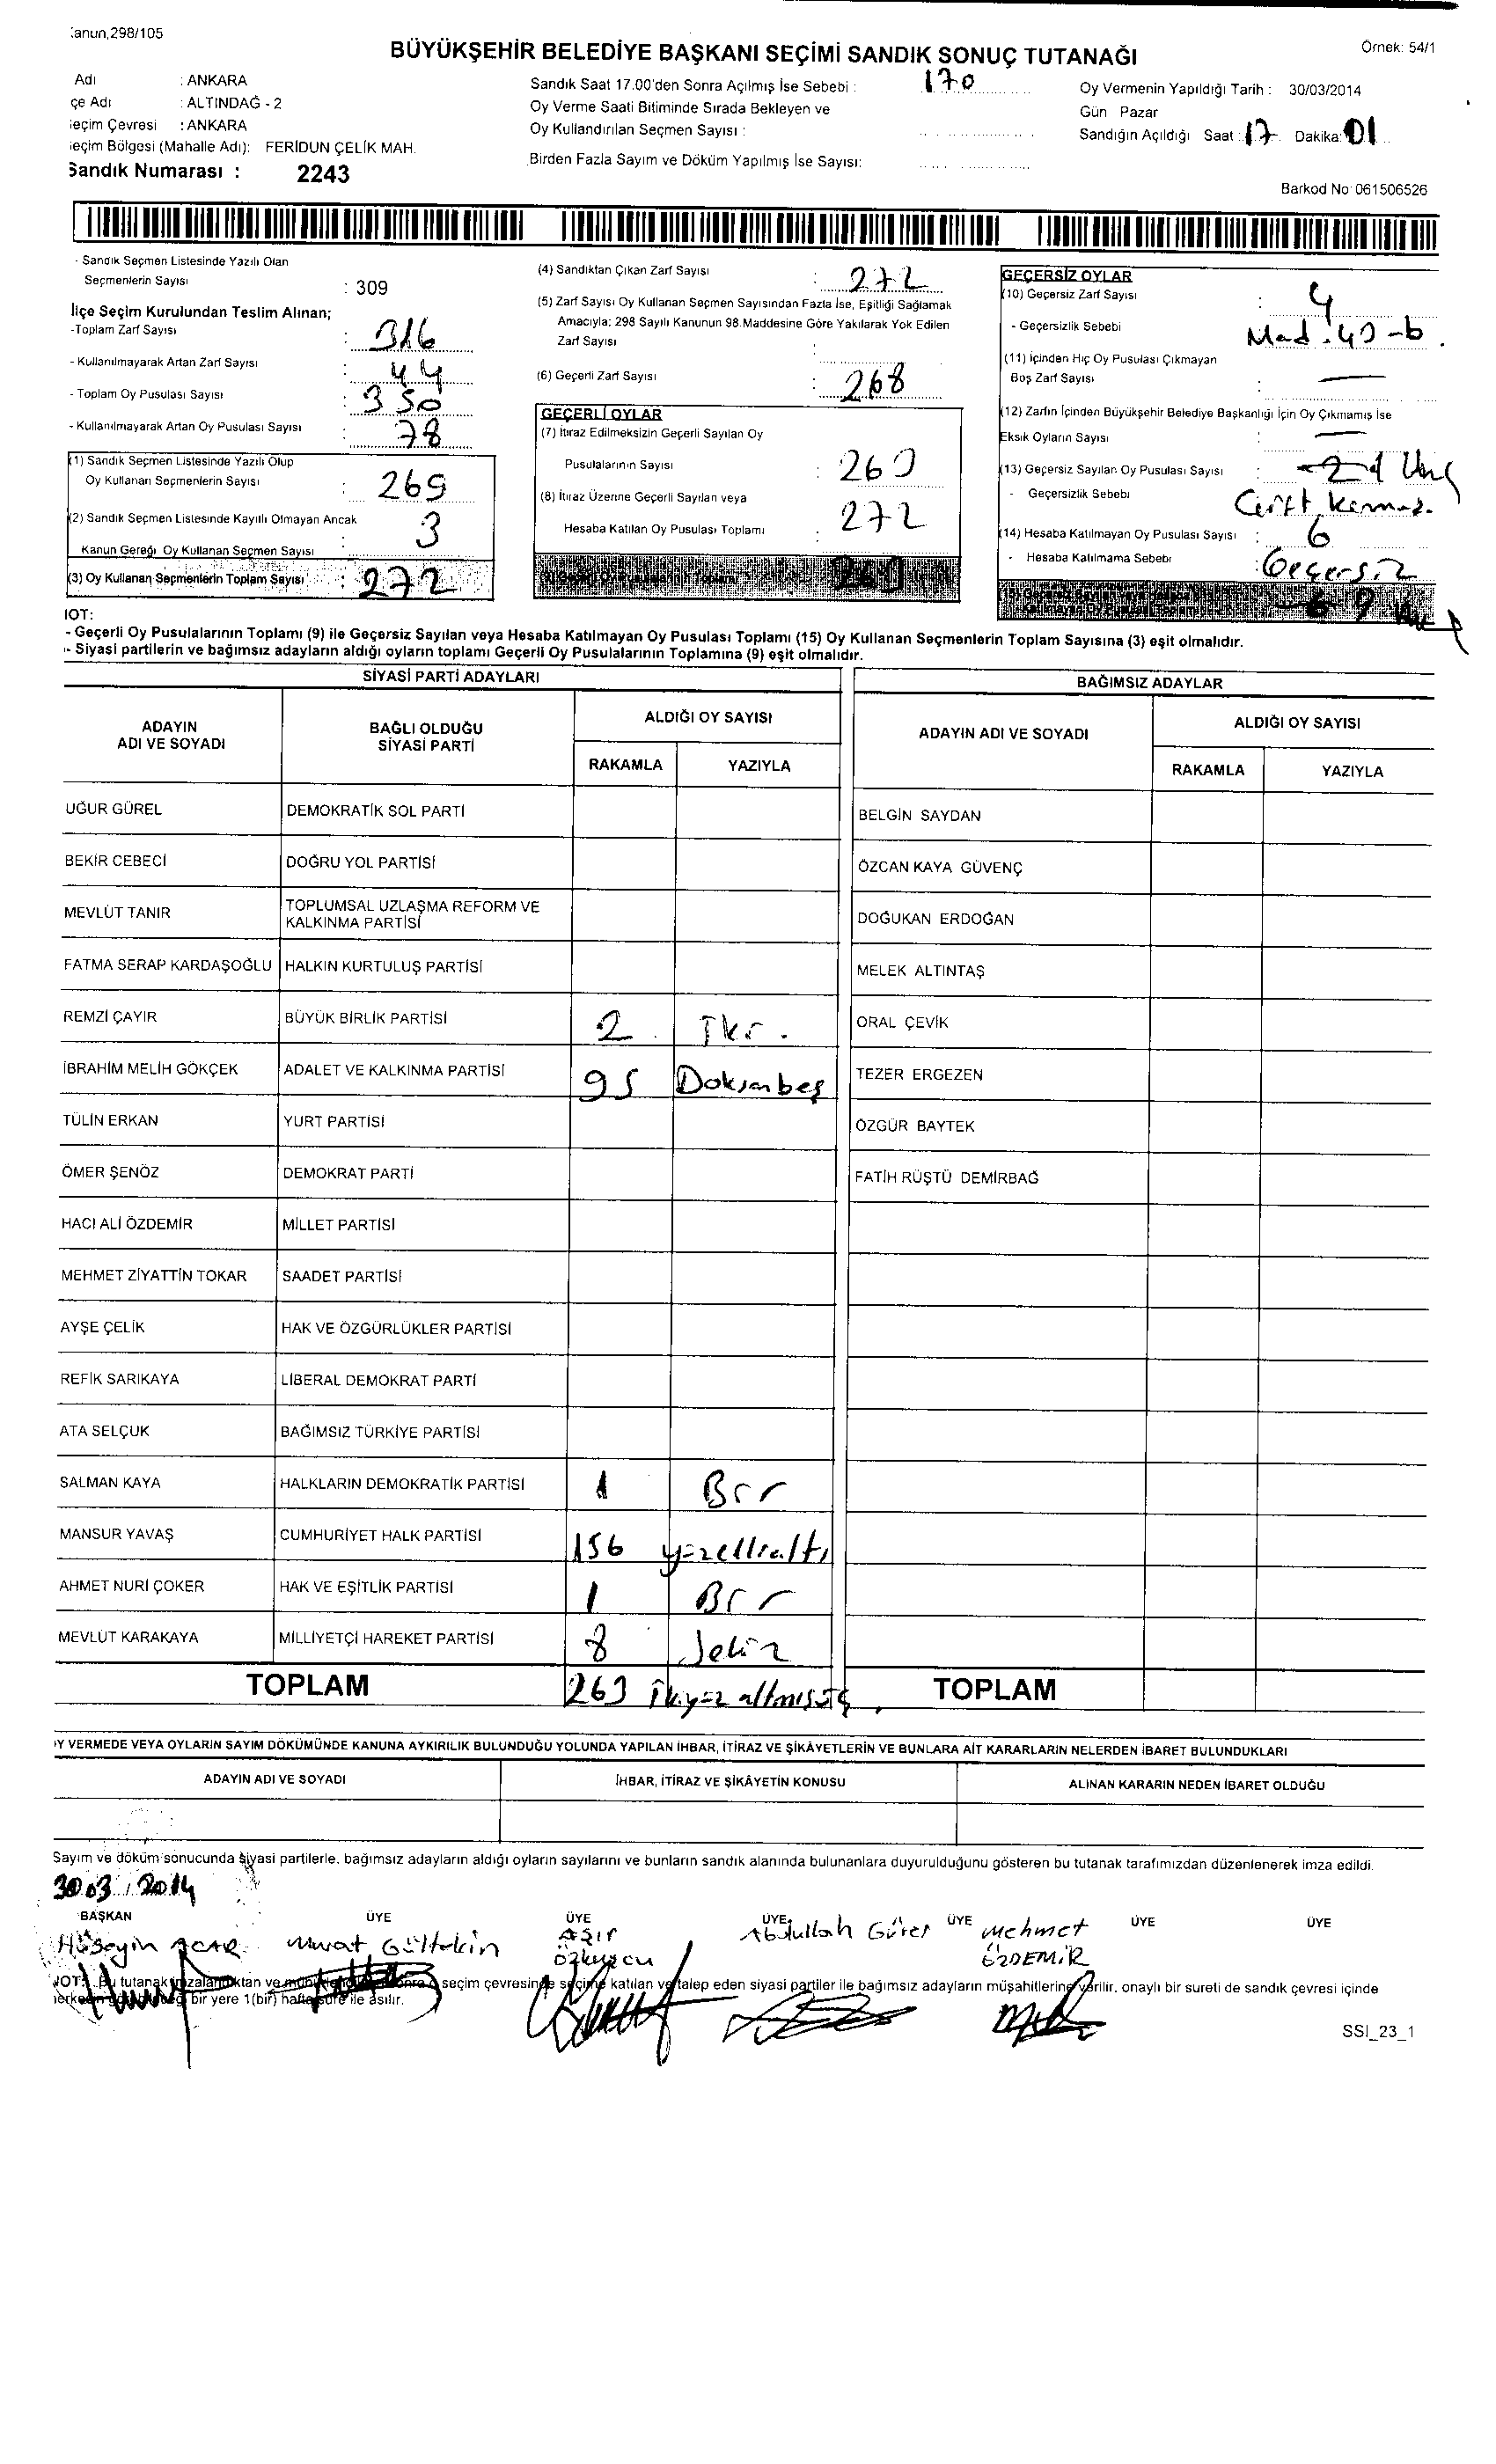 anun,298/105
BÜYÜKŞEHİR BELEDİYE BAŞKANI SEÇİMİ SANDIK SONUÇ TUTANAĞI
Örnek: 54/1
Adı : ANKARA
çe Adı : ALTINDAĞ - 2
eçim Çevresi : ANKARA
eçim Bölgesi (Mahalle Adı): FERİDUN ÇELİK MAH.
Sandık Numarası : 2243
Sandık Saat 17.00'den Sonra Açılmış İse Sebebi : 170
Oy Verme Saati Bitiminde Sırada Bekleyen ve
Oy Kullandırılan Seçmen Sayısı :
Birden Fazla Sayım ve Döküm Yapılmış İse Sayısı:
Oy Vermenin Yapıldığı Tarih : 30/03/2014
Gün Pazar
Sandığın Açıldığı Saat : 17 Dakika: 01
Barkod No: 061506526
- Sandık Seçmen Listesinde Yazılı Olan
Seçmenlerin Sayısı : 309
İlçe Seçim Kurulundan Teslim Alınan;
-Toplam Zarf Sayısı : 316
- Kullanılmayarak Artan Zarf Sayısı : 44
- Toplam Oy Pusulası Sayısı : 350
- Kullanılmayarak Artan Oy Pusulası Sayısı : 78
(1) Sandık Seçmen Listesinde Yazılı Olup
Oy Kullanan Seçmenlerin Sayısı : 269
(2) Sandık Seçmen Listesinde Kayıtlı Olmayan Ancak
Kanun Gereği Oy Kullanan Seçmen Sayısı : 3
(3) Oy Kullanan Seçmenlerin Toplam Sayısı : 272
(4) Sandıktan Çıkan Zarf Sayısı : 272
(5) Zarf Sayısı Oy Kullanan Seçmen Sayısından Fazla İse, Eşitliği Sağlamak
Amacıyla; 298 Sayılı Kanunun 98.Maddesine Göre Yakılarak Yok Edilen
Zarf Sayısı :
(6) Geçerli Zarf Sayısı : 268
GEÇERLİ OYLAR
(7) İtiraz Edilmeksizin Geçerli Sayılan Oy
Pusulalarının Sayısı : 263
(8) İtiraz Üzerine Geçerli Sayılan veya
Hesaba Katılan Oy Pusulası Toplamı : 272
263
GEÇERSİZ OYLAR
(10) Geçersiz Zarf Sayısı : 4
- Geçersizlik Sebebi Mad
(11) İçinden Hiç Oy Pusulası Çıkmayan
Boş Zarf Sayısı : —
(12) Zarfın İçinden Büyükşehir Belediye Başkanlığı İçin Oy Çıkmamış İse
Eksik Oyların Sayısı : —
(13) Geçersiz Sayılan Oy Pusulası Sayısı :
- Geçersizlik Sebebi
(14) Hesaba Katılmayan Oy Pusulası Sayısı : 6
- Hesaba Katılmama Sebebi : Geçersiz
9
NOT:
- Geçerli Oy Pusulalarının Toplamı (9) ile Geçersiz Sayılan veya Hesaba Katılmayan Oy Pusulası Toplamı (15) Oy Kullanan Seçmenlerin Toplam Sayısına (3) eşit olmalıdır.
- Siyasi partilerin ve bağımsız adayların aldığı oyların toplamı Geçerli Oy Pusulalarının Toplamına (9) eşit olmalıdır.
SİYASİ PARTİ ADAYLARI
BAĞIMSIZ ADAYLAR
ADAYIN ADI VE SOYADI BAĞLI OLDUĞU SİYASİ PARTİ ALDIĞI OY SAYISI
RAKAMLA YAZIYLA
ADAYIN ADI VE SOYADI ALDIĞI OY SAYISI
RAKAMLA YAZIYLA
UĞUR GÜREL DEMOKRATİK SOL PARTİ BELGİN SAYDAN
BEKİR CEBECİ DOĞRU YOL PARTİSİ ÖZCAN KAYA GÜVENÇ
MEVLÜT TANIR TOPLUMSAL UZLAŞMA REFORM VE KALKINMA PARTİSİ DOĞUKAN ERDOĞAN
FATMA SERAP KARDAŞOĞLU HALKIN KURTULUŞ PARTİSİ MELEK ALTINTAŞ
REMZİ ÇAYIR BÜYÜK BİRLİK PARTİSİ 2 İki ORAL ÇEVİK
İBRAHİM MELİH GÖKÇEK ADALET VE KALKINMA PARTİSİ 95 Doksanbeş TEZER ERGEZEN
TÜLİN ERKAN YURT PARTİSİ ÖZGÜR BAYTEK
ÖMER ŞENÖZ DEMOKRAT PARTİ FATİH RÜŞTÜ DEMİRBAĞ
HACI ALİ ÖZDEMİR MİLLET PARTİSİ
MEHMET ZİYATTİN TOKAR SAADET PARTİSİ
AYŞE ÇELİK HAK VE ÖZGÜRLÜKLER PARTİSİ
REFİK SARIKAYA LİBERAL DEMOKRAT PARTİ
ATA SELÇUK BAĞIMSIZ TÜRKİYE PARTİSİ
SALMAN KAYA HALKLARIN DEMOKRATİK PARTİSİ 1 Bir
MANSUR YAVAŞ CUMHURİYET HALK PARTİSİ 156 yüzellialtı
AHMET NURİ ÇOKER HAK VE EŞİTLİK PARTİSİ 1 Bir
MEVLÜT KARAKAYA MİLLİYETÇİ HAREKET PARTİSİ 8 Sekiz
TOPLAM 263 İkiyüz altmışüç TOPLAM
Y VERMEDE VEYA OYLARIN SAYIM DÖKÜMÜNDE KANUNA AYKIRILIK BULUNDUĞU YOLUNDA YAPILAN İHBAR, İTİRAZ VE ŞİKÂYETLERİN VE BUNLARA AİT KARARLARIN NELERDEN İBARET BULUNDUKLARI
ADAYIN ADI VE SOYADI İHBAR, İTİRAZ VE ŞİKÂYETİN KONUSU ALINAN KARARIN NEDEN İBARET OLDUĞU
Sayım ve döküm sonucunda siyasi partilerle, bağımsız adayların aldığı oyların sayılarını ve bunların sandık alanında bulunanlara duyurulduğunu gösteren bu tutanak tarafımızdan düzenlenerek imza edildi.
30.03/2014
BAŞKAN ÜYE ÜYE ÜYE ÜYE ÜYE ÜYE
Hüseyin ACAR Murat Gültekin AŞIR Abdullah Gürer Mehmet ÖZDEMİR
NOT: Bu tutanak imzalandıktan seçim çevresinde seçime katılan ve talep eden siyasi partiler ile bağımsız adayların müşahitlerine verilir, onaylı bir sureti de sandık çevresi içinde
bir yere 1(bir) hafta süre ile asılır.
SSI_23_1